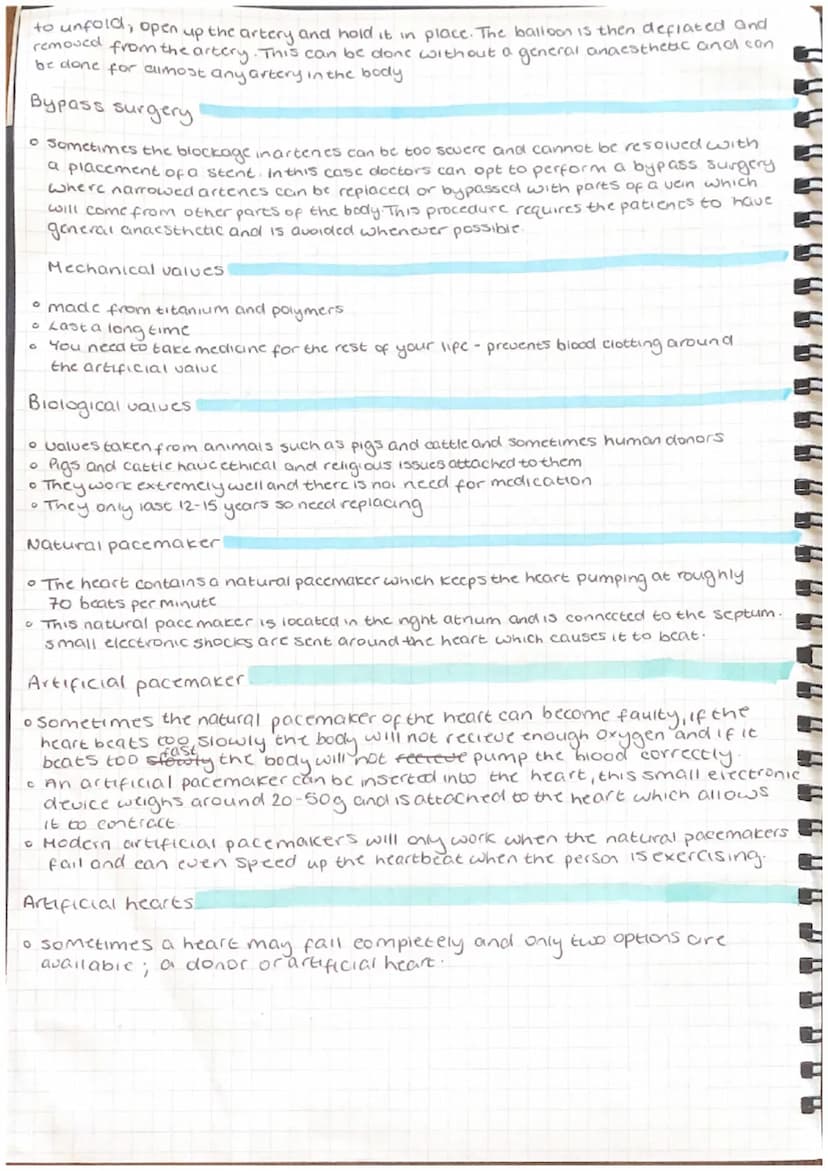 to unfold, open up the artery and hold it in place. The balloon is then deflated and
removed from the artery. This can be done without a general anaesthetic and can
be done for almost any artery in the body
Bypass surgery
Sometimes the blockage in arteries can be too severe and cannot be resolved with
a placement of a stent. In this case doctors can opt to perform a bypass surgery
where narrowed arteries can be replaced or bypassed with parts of a vein which
will come from other parts of the body. This procedure requires the patients to have
general anaesthetic and is avoided whenever possible.
Mechanical valves
made from titanium and polymers
Last a long time
You need to take medicine for the rest of your life - prevents blood clotting around
the artificial valve
Biological valves
valves taken from animals such as pigs and cattle and sometimes human donors
Pigs and cattle have ethical and religious issues attached to them
They work extremely well and there is not need for medication
They only last 12-15 years so need replacing
Natural pacemaker
The heart contains a natural pacemaker which keeps the heart pumping at roughly
70 beats per minute
This natural pacemaker is located in the right atrium and is connected to the septum.
small electronic shocks are sent around the heart which causes it to beat.
Artificial pacemaker
Sometimes the natural pacemaker of the heart can become faulty, if the
heart beats too slowly the body will not recieve enough oxygen and if it
beats too slowly fast the body will not recieve pump the blood correctly.
An artificial pacemaker can be inserted into the heart, this small electronic
device weighs around 20-50g and is attached to the heart which allows
it to contract
Modern artificial pacemakers will only work when the natural pacemakers
fail and can even speed up the heartbeat when the person is exercising.
Artificial hearts
sometimes a heart may fail completely and only two options are
available; a donor or artificial heart.